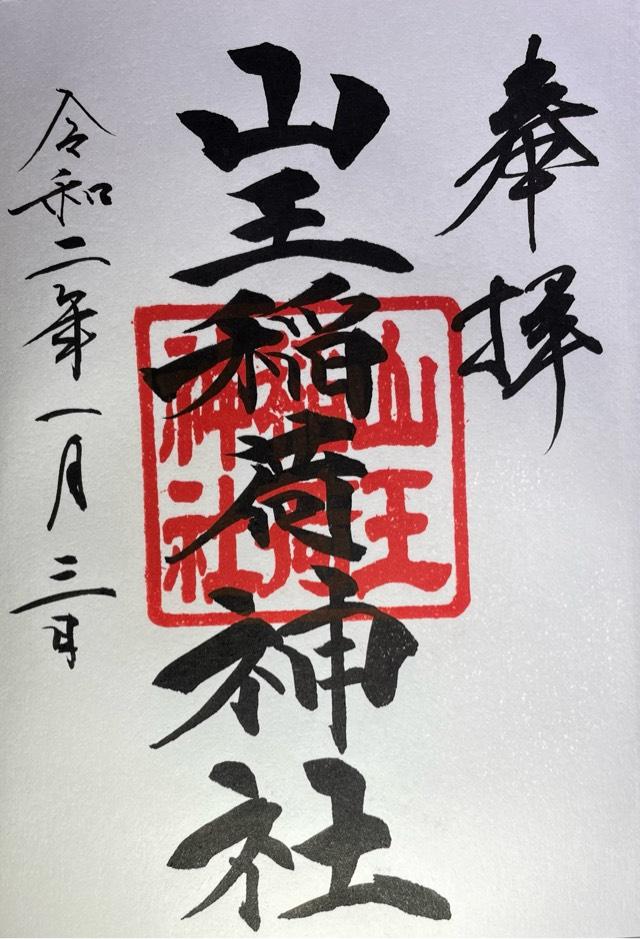 奉拝
山王稲荷神社
山王
稲荷
神社
令和二年一月三日